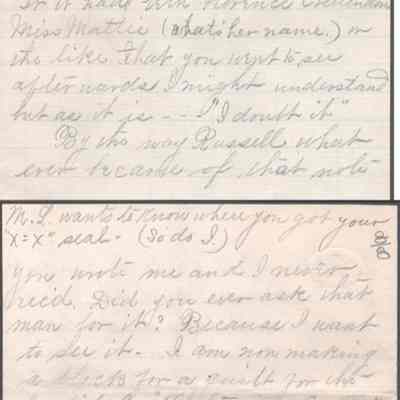 it had been Florence
Miss Mattie (whats her name.) or
the like that you went to see
afterwards I might understand
but as it is - - - "I doubt it"
By the way Russell what
ever became of that note
M. L. wants to know where you got your
"x=x" seal - (So do I.)
you wrote me and I never
rec'd. Did you ever ask that
man for it? Because I want
to see it. I am now making
a block for a quilt for the